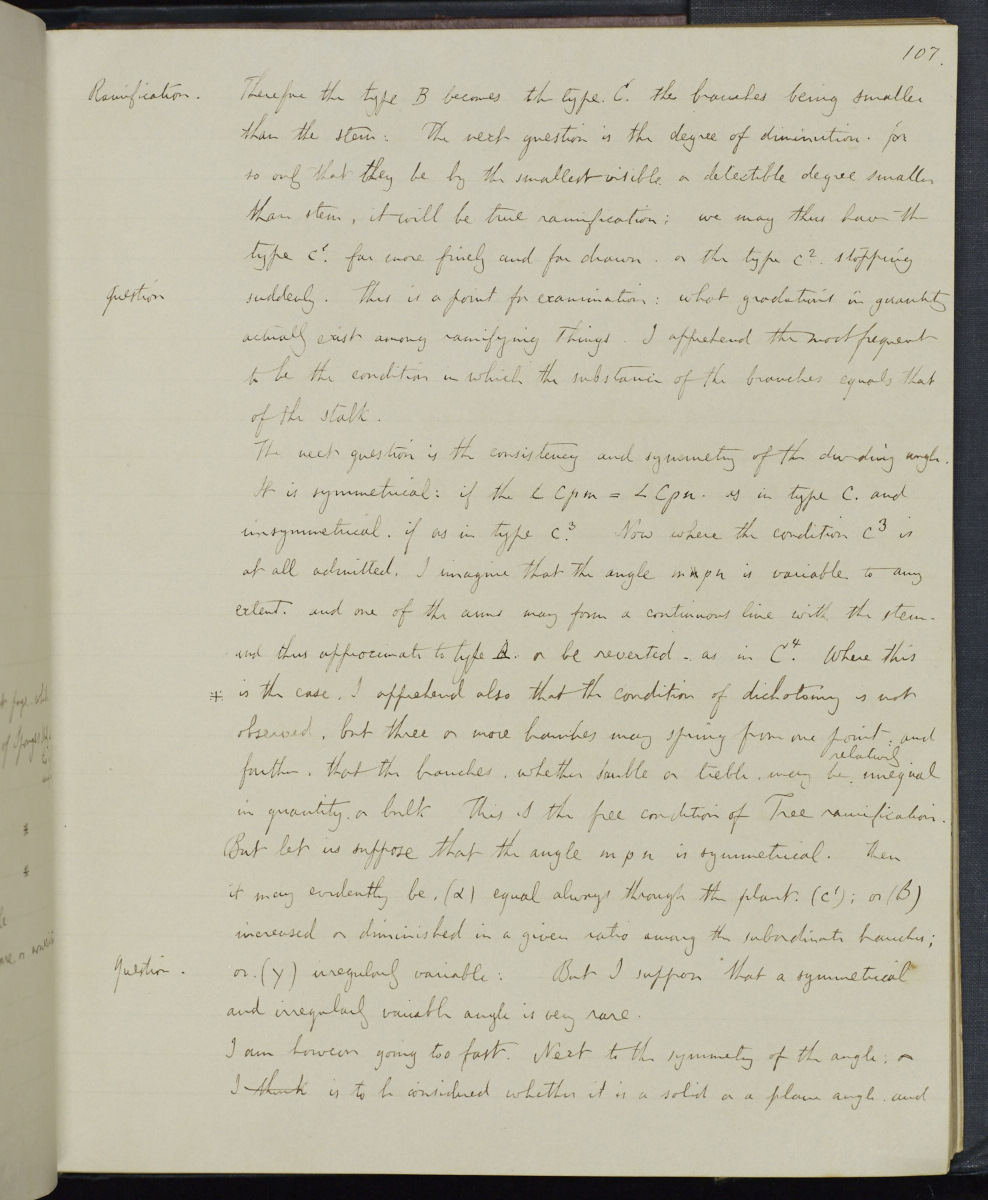 107.
Ramification. Therefore the type B becomes the type. C. the branches being smaller
than the stem: The next question is the degree of diminution. for
so only that they be by the smallest visible or detectible degree smaller
than stem, it will be true ramification: we may thus have the
type c¹. far more finely and far drawn. or the type c². stopping
Question suddenly. This is a point for examination: what gradations in quantity
actually exist among ramifying things. I apprehend the most frequent
to be the condition in which the substance of the branches equals that
of the stalk.
The next question is the consistency and symmetry of the dividing angle.
It is symmetrical: if the ∠ Cpm = ∠ Cpn. as in type C. and
unsymmetrical. if as in type c³. Now where the condition C³ is
at all admitted, I imagine that the angle mpn is variable to any
extent. and one of the arms may form a continuous line with the stem.
and thus approximate to type A. or be reverted. as in C⁴. Where this
* is the case, I apprehend also that the condition of dichotomy is not
observed, but three or more branches may spring from one point: and
relatively
farther. that the branches, whether double or treble, may be unequal
in quantity or bulk This is the free condition of Tree ramification.
But let us suppose that the angle mpn is symmetrical. Then
it may evidently be, (α) equal always through the plant. (c¹); or (B)
increased or diminished in a given ratio among the subordinate branches;
Question. or. (γ) irregularly variable: But I suppose that a symmetrical
and irregularly variable angle is very rare.
I am however going too fast. Next to the symmetry of the angle;
I think is to be considered whether it is a solid or a plane angle. and